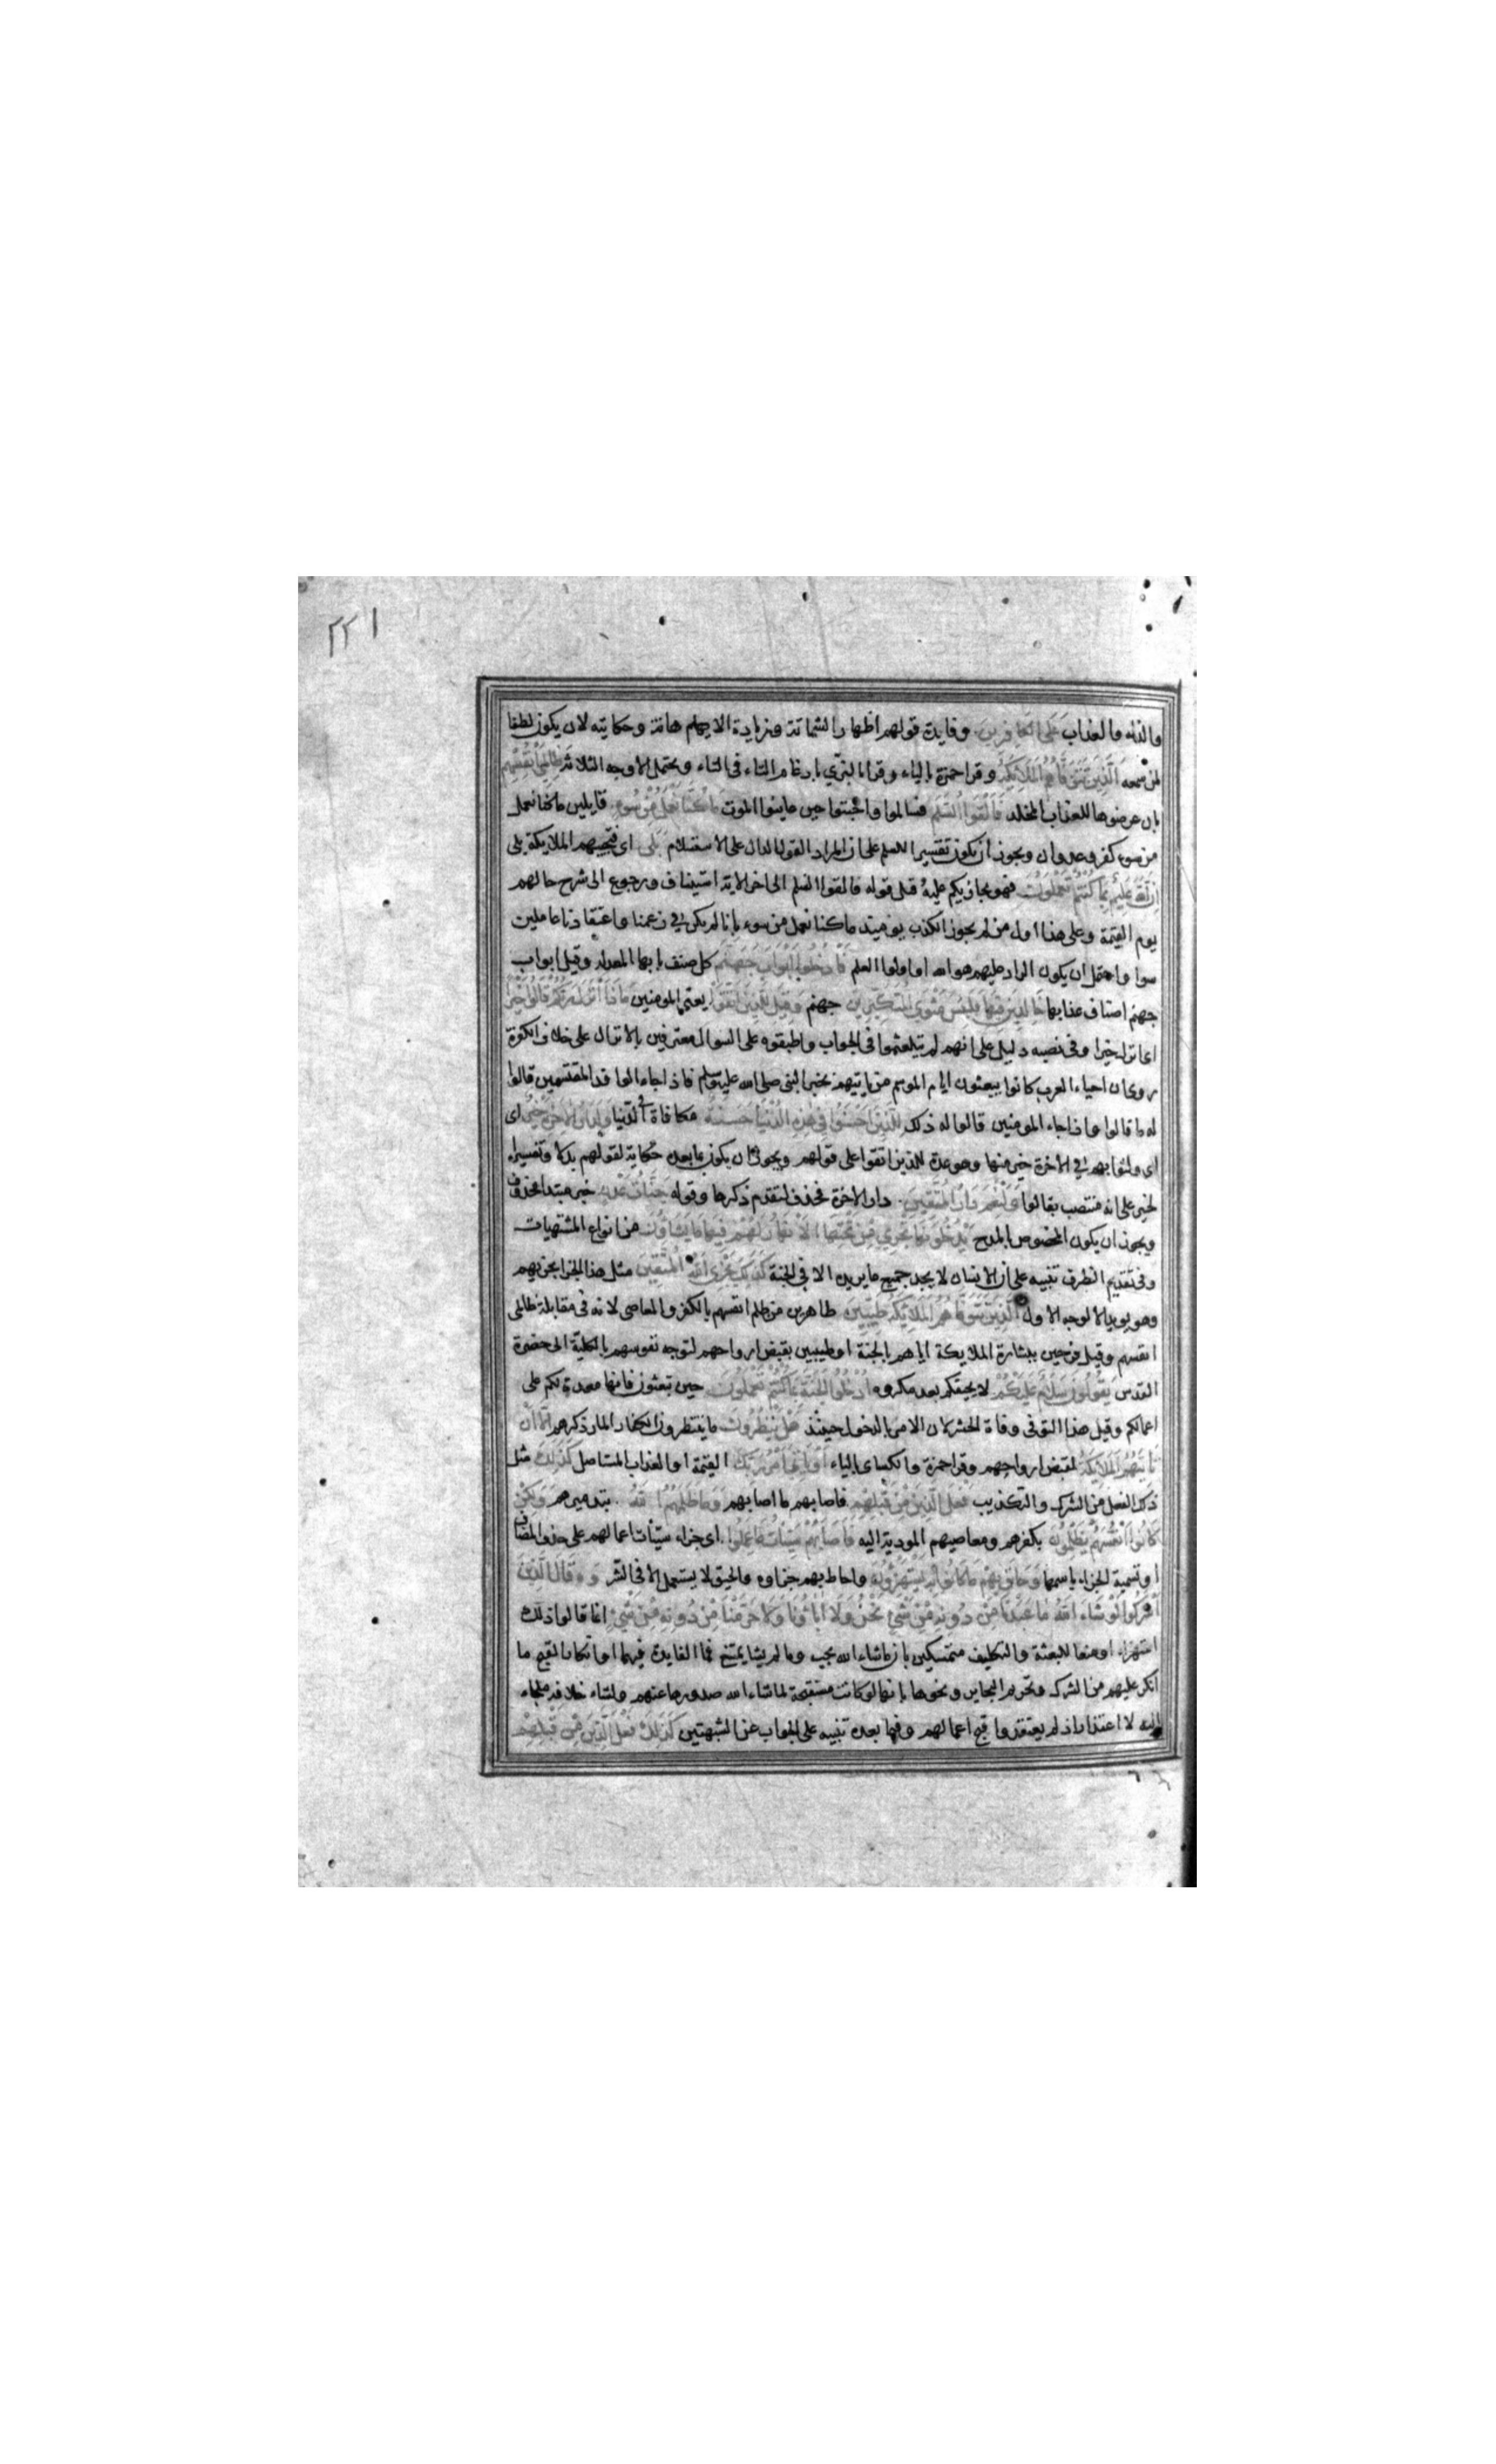 ٢٢١
والذلة والعذاب على الكافرين وفايدة قولهم اظهار الشماتة وزيادة الاهانة وحكايته لان يكون لطفا
لمن سمعه الذين تتوفاهم الملائكة وقرا حمزة بالياء وقرا البزي بادغام التاء في التاء ويحتمل الاوجه الثلاثة ظالمي انفسهم
بان عرضوها للعذاب المخلد فالقوا السلم فسالموا واخبتوا حين عاينوا الموت ما كنا نعمل من سوء قايلين ما كنا نعمل
من سوء كفر وعدوان ويجوز ان يكون تفسيرا للسلم على ان المراد القول الدال على الاستسلام بلى اى فتجيبهم الملايكة بلى
ان الله عليم بما كنتم تعملون فهو يجازيكم عليه وقيل قوله فالقوا السلم الى اخر الاية استيناف ورجوع الى شرح حالهم
يوم القيمة وعلى هذا اول من لم يجوز الكذب يوميذ ما كنا نعمل من سوء بانا لم نكن في زعمنا واعتقادنا عاملين
سوا واحتمل ان يكون الراد عليهم هو الله او اولوا العلم فادخلوا ابواب جهنم كل صنف بابها المعد له وقيل ابواب
جهنم اصناف عذابها خالدين فيها فلبئس مثوى المتكبرين جهنم وقيل للذين اتقوا يعني المومنين ماذا انزل ربكم قالوا خيرا
اى انزل خيرا وفي نصبه دليل على انهم لم يتلعثموا في الجواب واطبقوه على السوال معترفين بالانزال على خلاف الكفرة
روى ان احياء العرب كانوا يبعثون ايام الموسم من ياتيهم بخبر النبي صلى الله عليه وسلم فاذا جاء الوافد المقتسمين قالوا
له ما قالوا واذا جاء المومنين قالوا له ذلك للذين احسنوا في هذه الدنيا حسنة مكافاة في الدنيا ولدار الاخرة خير اى
اى ولثوابهم في الاخرة خير منها وهو عدة للذين اتقوا على قولهم ويجوز ان يكون بما بعده حكاية لقولهم بدلا وتفسيرا
لخير على انه منتصب بقالوا ولنعم دار المتقين دار الاخرة فحذف لتقدم ذكرها وقوله جنات عدن خبر مبتدا محذوف
ويجوز ان يكون المخصوص بالمدح يدخلونها تجري من تحتها الانهار لهم فيها ما يشاؤن من انواع المشتهيات
وفي تقديم الظرف تنبيه على ان الانسان لا يجد جميع ما يريده الا في الجنة كذلك يجزى الله المتقين مثل هذا الجزا يجزيهم
وهو يويد الوجه الاول الذين تتوفاهم الملايكة طيبين طاهرين من ظلم انفسهم بالكفر والمعاصى لانه في مقابلة ظالمى
انفسهم وقيل فرحين ببشارة الملايكة اياهم بالجنة او طيبين بقبض ارواحهم لتوجه نفوسهم بالكلية الى حضرة
القدس يقولون سلام عليكم لا يحيقكم بعد مكروه ادخلوا الجنة بما كنتم تعملون حين تبعثون فانها معدة لكم على
اعمالكم وقيل هذا التوفى وفاة الحشر لان الامر بالدخول حينئذ هل ينظرون ما ينتظرون الكفار المار ذكرهم الا ان
تاتيهم الملايكة لقبض ارواحهم وقرا حمزة والكساى بالياء او ياتي امر ربك القيمة او العذاب المستاصل كذلك مثل
ذلك الفعل من الشرك والتكذيب فعل الذين من قبلهم فاصابهم ما اصابهم وما ظلمهم الله بتدميرهم ولكن
كانوا انفسهم يظلمون بكفرهم ومعاصيهم المودية اليه فاصابهم سيئات ما عملوا اى جزاء سيئات اعمالهم على حذف المضاف
او تسمية الجزاء باسمها وحاق بهم ما كانوا به يستهزؤن واحاط بهم جزاوه والحيق لا يستعمل الا في الشر وقال الذين
اشركوا لو شاء الله ما عبدنا من دونه من شئ نحن ولا اباؤنا ولا حرمنا من دونه من شئ انما قالوا ذلك
استهزاء او منعا للبعثة والتكليف متمسكين بان ما شاء الله يجب وما لم يشا يمتنع فما الفايدة فيهما او انكارا لقبح ما
انكر عليهم من الشرك وتحريم البحاير ونحوها بانها لو كانت مستقبحة لما شاء الله صدورها عنهم ولشاء خلافه ملجاء
اليه لا اعتذارا اذ لم يعتقدوا قبح اعمالهم وفيما بعده تنبيه على الجواب عن الشبهتين كذلك فعل الذين من قبلهم